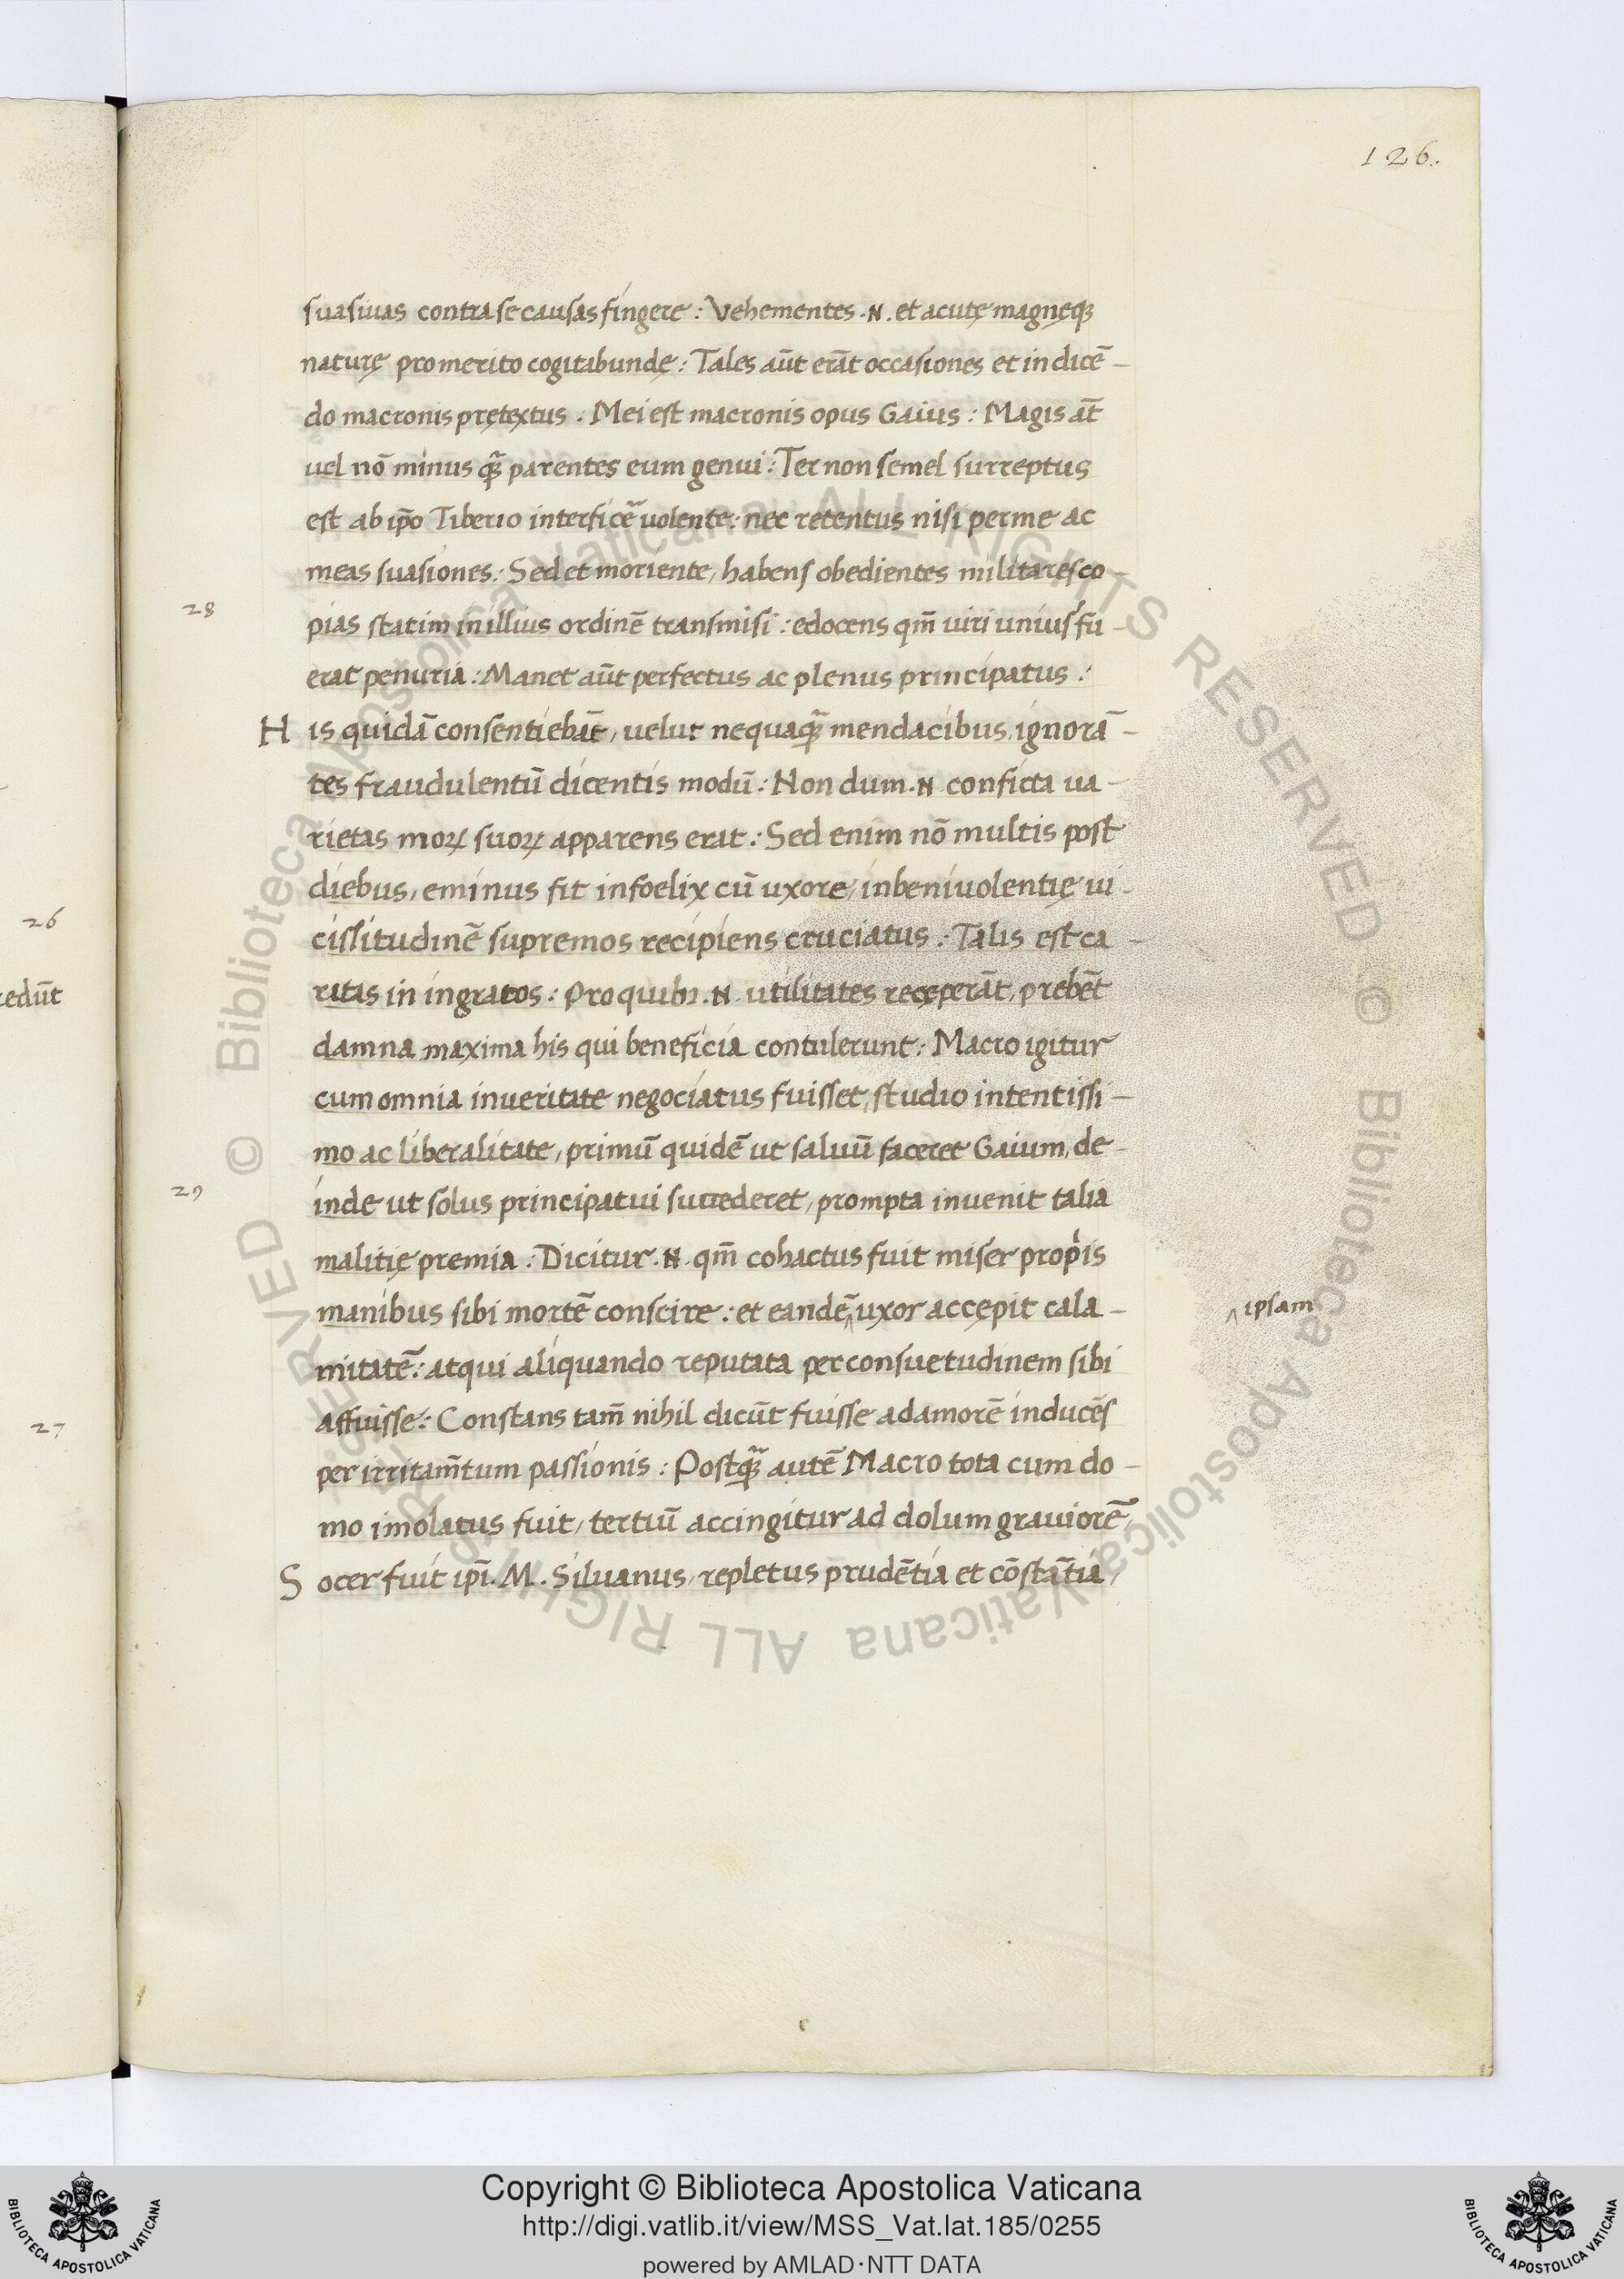 126.
suasiuas contra se causas fingere : Vehementes .N. et acutę magnęqꝫ
naturę pro merito cogitabundę : Tales aūt erāt occasiones et in dicē-
do macronis prętextus . Mei est macronis opus Gaius : Magis at̄
uel nō minus qꝫ̄ parentes eum genui : Ter non semel surreptus
est ab ip̄o Tiberio interficē uolente : nec retentus nisi per me ac
meas suasiones : Sed et moriente, habens obedientes militares co-
28
pias statim in illius ordinē transmisi : edocens qm̄ uiri unius fu-
erat penuria : Manet aūt perfectus ac plenus principatus :
His quidā consentiebāt, uelut nequaqꝫ̄ mendacibus, ignorā-
tes fraudulentū dicentis modū : Non dum .N. conficta ua-
rietas moꝝ suoꝝ apparens erat : Sed enim nō multis post
diebus, eminus fit infoelix cū uxore, in beniuolentię ui-
cissitudinē supremos recipiens cruciatus : Talis est ca-
ritas in ingratos : Pro quibꝫ .N. utilitates recęperāt, prebēt
damna maxima his qui beneficia contulerunt : Macro igitur
cum omnia in ueritate negociatus fuisset, studio intentissi-
mo ac liberalitate, primū quidē ut saluū faceret Gaium, de-
29
inde ut solus principatui succederet, prompta inuenit talia
malitię premia : Dicitur .N. qm̄ cohactus fuit miser propͥis
manibus sibi mortē conscire : et eandē ‸ uxor accępit cala-
‸ ipsam
mitatē : atqui aliquando reputata per consuetudinem sibi
affuisse : Constans tam̄ nihil dicūt fuisse ad amorē inducēs
per irritam̄tum passionis : Postqꝫ̄ autē Macro tota cum do-
mo imolatus fuit, tertiū accingitur ad dolum grauiorē
Socer fuit ip̄i . M . Siluanus, repletus prudētia et cōstātia,
26
cedūt
27
© Biblioteca Apostolica Vaticana ALL RIGHTS RESERVED © Biblioteca Apostolica Vaticana ALL RIGHTS RESERVED
Copyright © Biblioteca Apostolica Vaticana
http://digi.vatlib.it/view/MSS_Vat.lat.185/0255
powered by AMLAD·NTT DATA
BIBLIOTECA APOSTOLICA VATICANA
BIBLIOTECA APOSTOLICA VATICANA